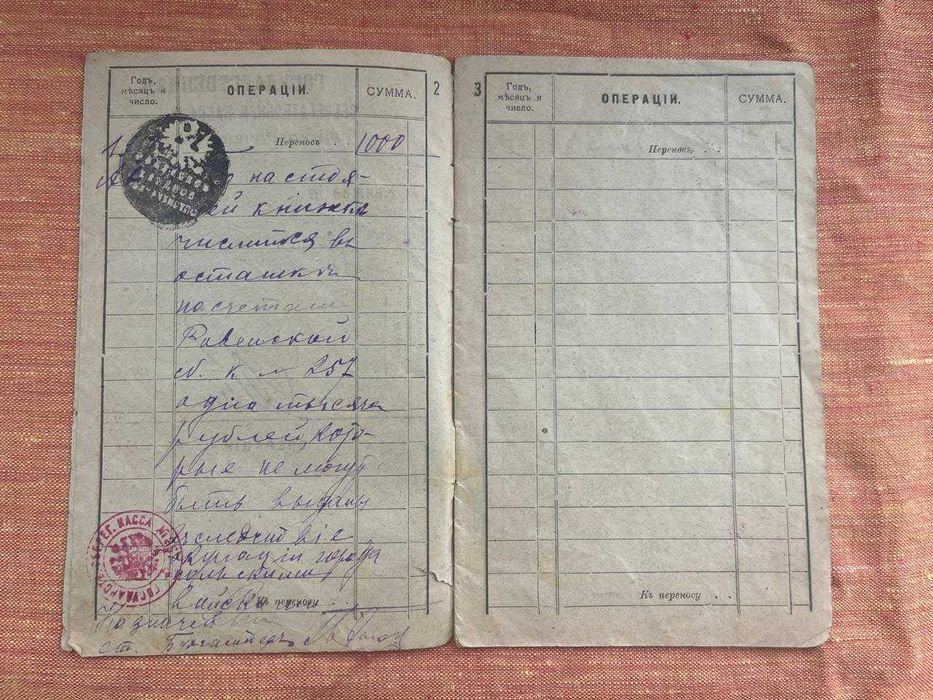 Годъ, мѣсяцъ и число. ОПЕРАЦІИ. СУММА. 2
Переносъ . . 1000
насто-
ей книжки
числится въ
остаткѣ
по счетамъ
Ровенской
сб. к № 257
одна тысяча
рублей, кото-
рые не могутъ
быть выданы
вслѣдствіе
оккупаціи города
польскими
войск
Къ переносу . .
Бухгалтеръ
ГОСУДАРСТВ СБЕРЕГ. КАССА
3 Годъ, мѣсяцъ и число. ОПЕРАЦІИ. СУММА.
Переносъ . .
Къ переносу . .